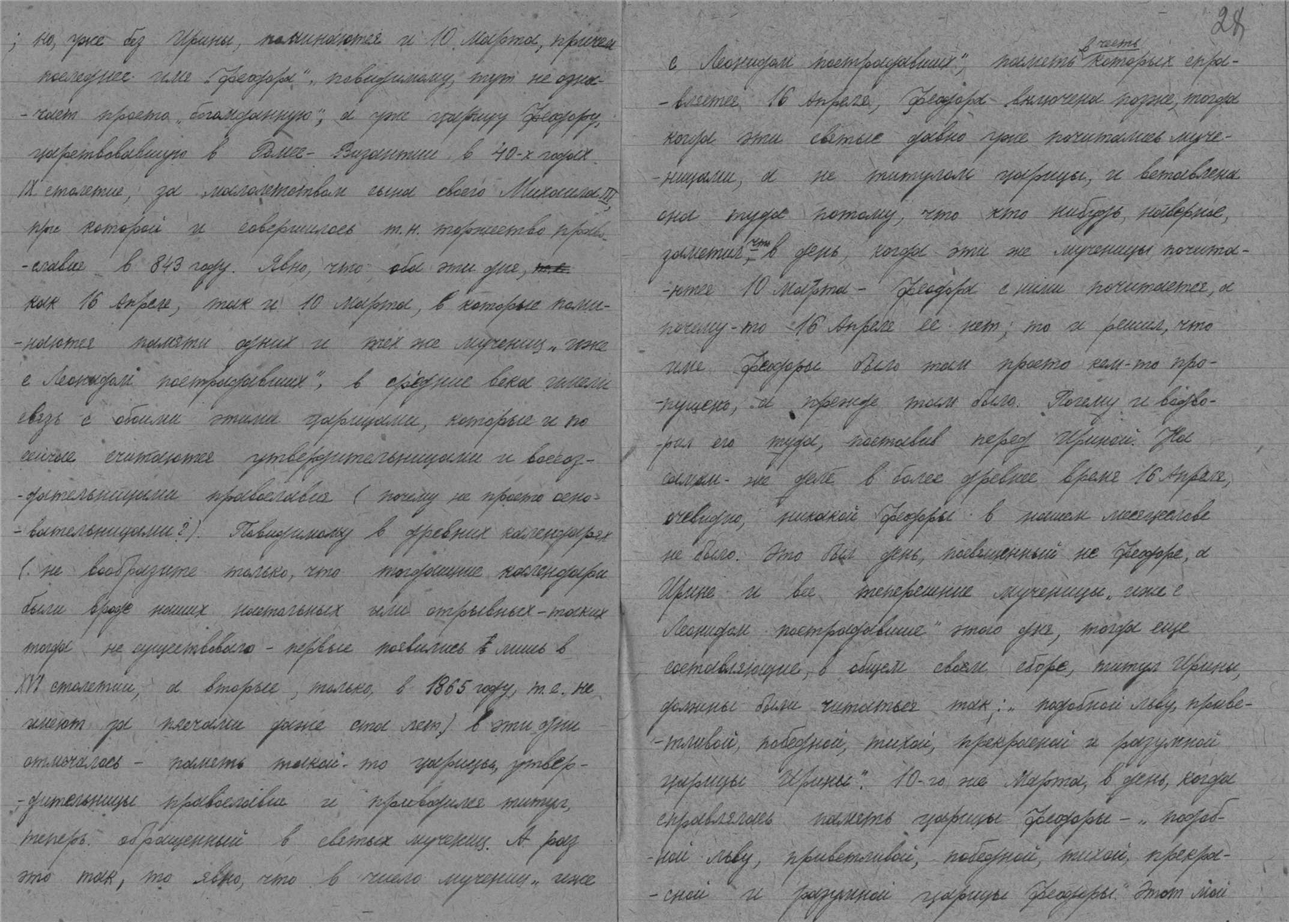 ; но, уже без Ирины, поминаются и 10 Марта, причем
последнее имя „Феодора“, повидимому, тут не озна-
-чает просто „богоданную“, а уже царицу Феодору,
царствовавшую в Ромее-Византии в 40-х годах
IX столетие, за малолетством сына своего Михаила III,
при которой и совершилось т.н. торжество право-
-славие в 843 году. Явно, что оба эти дне,
как 16 Апреле, так и 10 Марта, в которые поми-
-наются памяти одних и тех же мучениц „иже
с Леонидом пострадавших“, в средние века имели
связь с обоими этими царицами, которые и по
сейчас считаются утвердительницами и воссоз-
-дательницами православия (почему не просто осно-
-вательницами?). Повидимому в древних календарях
(не вообразите только, что тогдашние календари
были вроде наших настольных или отрывных-таких
тогда не существовало - первые появились лишь в
XVI столетии, а вторые, только, в 1865 году, т.е. не
имеют за плечами даже ста лет) в эти дни
отмечалось - память такой-то царицы, утвер-
-дительницы православия и приводился титул,
теперь обращенный в светых мучениц. А раз
это так, то явно, что в число мучениц „иже
28
с Леонидом пострадавших“, память в честь которых спра-
-вляетсе 16 Апреле, Феодора включена позже, тогда
когда эти светые давно уже почитались муче-
-ницами, а не титулом царицы, и вставлена
она туда потому, что кто нибудь, наверное,
заметил, что в день, когда эти же мученицы почита-
-ютсе 10 Марта - Феодора с ними почитается, а
почему-то 16 Апреле ее нет; то и решил, что
име Феодоры было там просто кем-то про-
-пущено, а прежде там было. Почему и водво-
-рил его туда, поставив перед Ириной. На
самом-же деле в более древнее время 16 Апреле,
очевидно, никакой Феодоры в нашем месяцеслове
не было. Это был день, посвященный не Феодоре, а
Ирине и все теперешние мученицы „иже с
Леонидом пострадавшие“ этого дня, тогда еще
составляющие, в общем своем сборе, титул Ирины,
должны были читаться так: „подобной льву, приве-
-тливой, победной, тихой, прекрасной и разумной
царицы Ирины“. 10-го же Марта, в день, когда
справлялась память царицы Феодоры - „подоб-
-ной льву, приветливой, победной, тихой, прекра-
-сной и разумной царицы Феодоры“. Этот мой